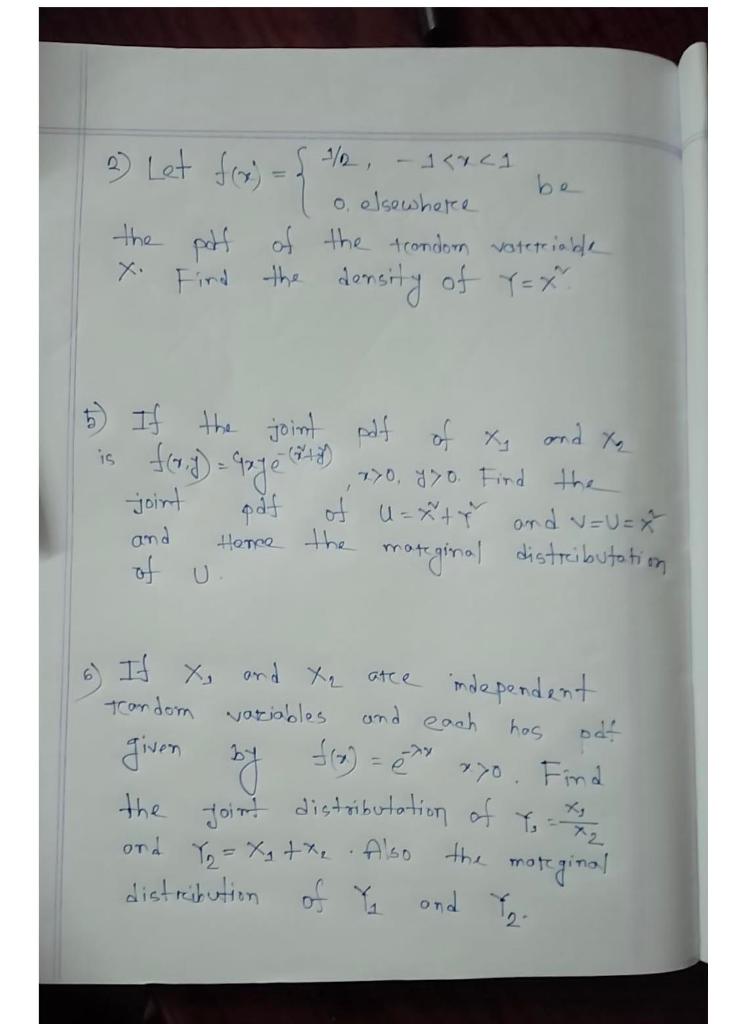 2) Let f(x) = { 1/2, -1<x<1
0, elsewhere be
the pdf of the random variable
X. Find the density of Y = X²
5) If the joint pdf of X₁ and X₂
is f(x,y) = 4xye^-(x²+y²), x>0, y>0. Find the
joint pdf of U = X²+Y² and V=U=X²
and Hence the marginal distributation
of U.
6) If X₁ and X₂ are independent
random variables and each has pdf
given by f(x) = e^-λx x>0. Find
the joint distributation of Y₁ = X₁/X₂
and Y₂ = X₁ + X₂. Also the marginal
distribution of Y₁ and Y₂.